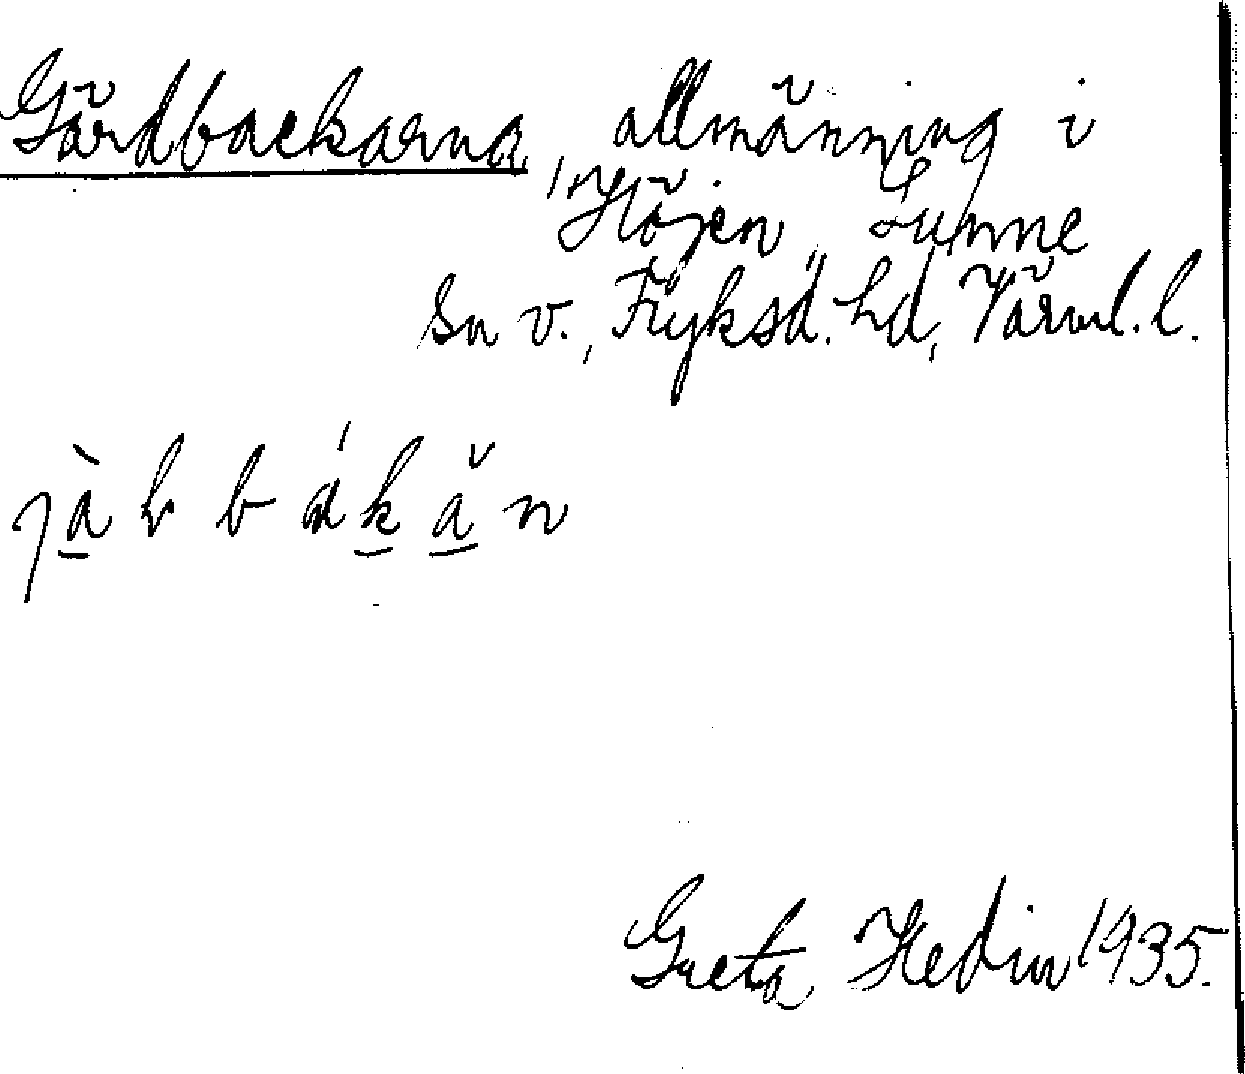 Gärdbackarna, allmänning i
Höjen, Sunne
sn v., Fryksd. hd, Värml. l.
Greta Hedin 1935.